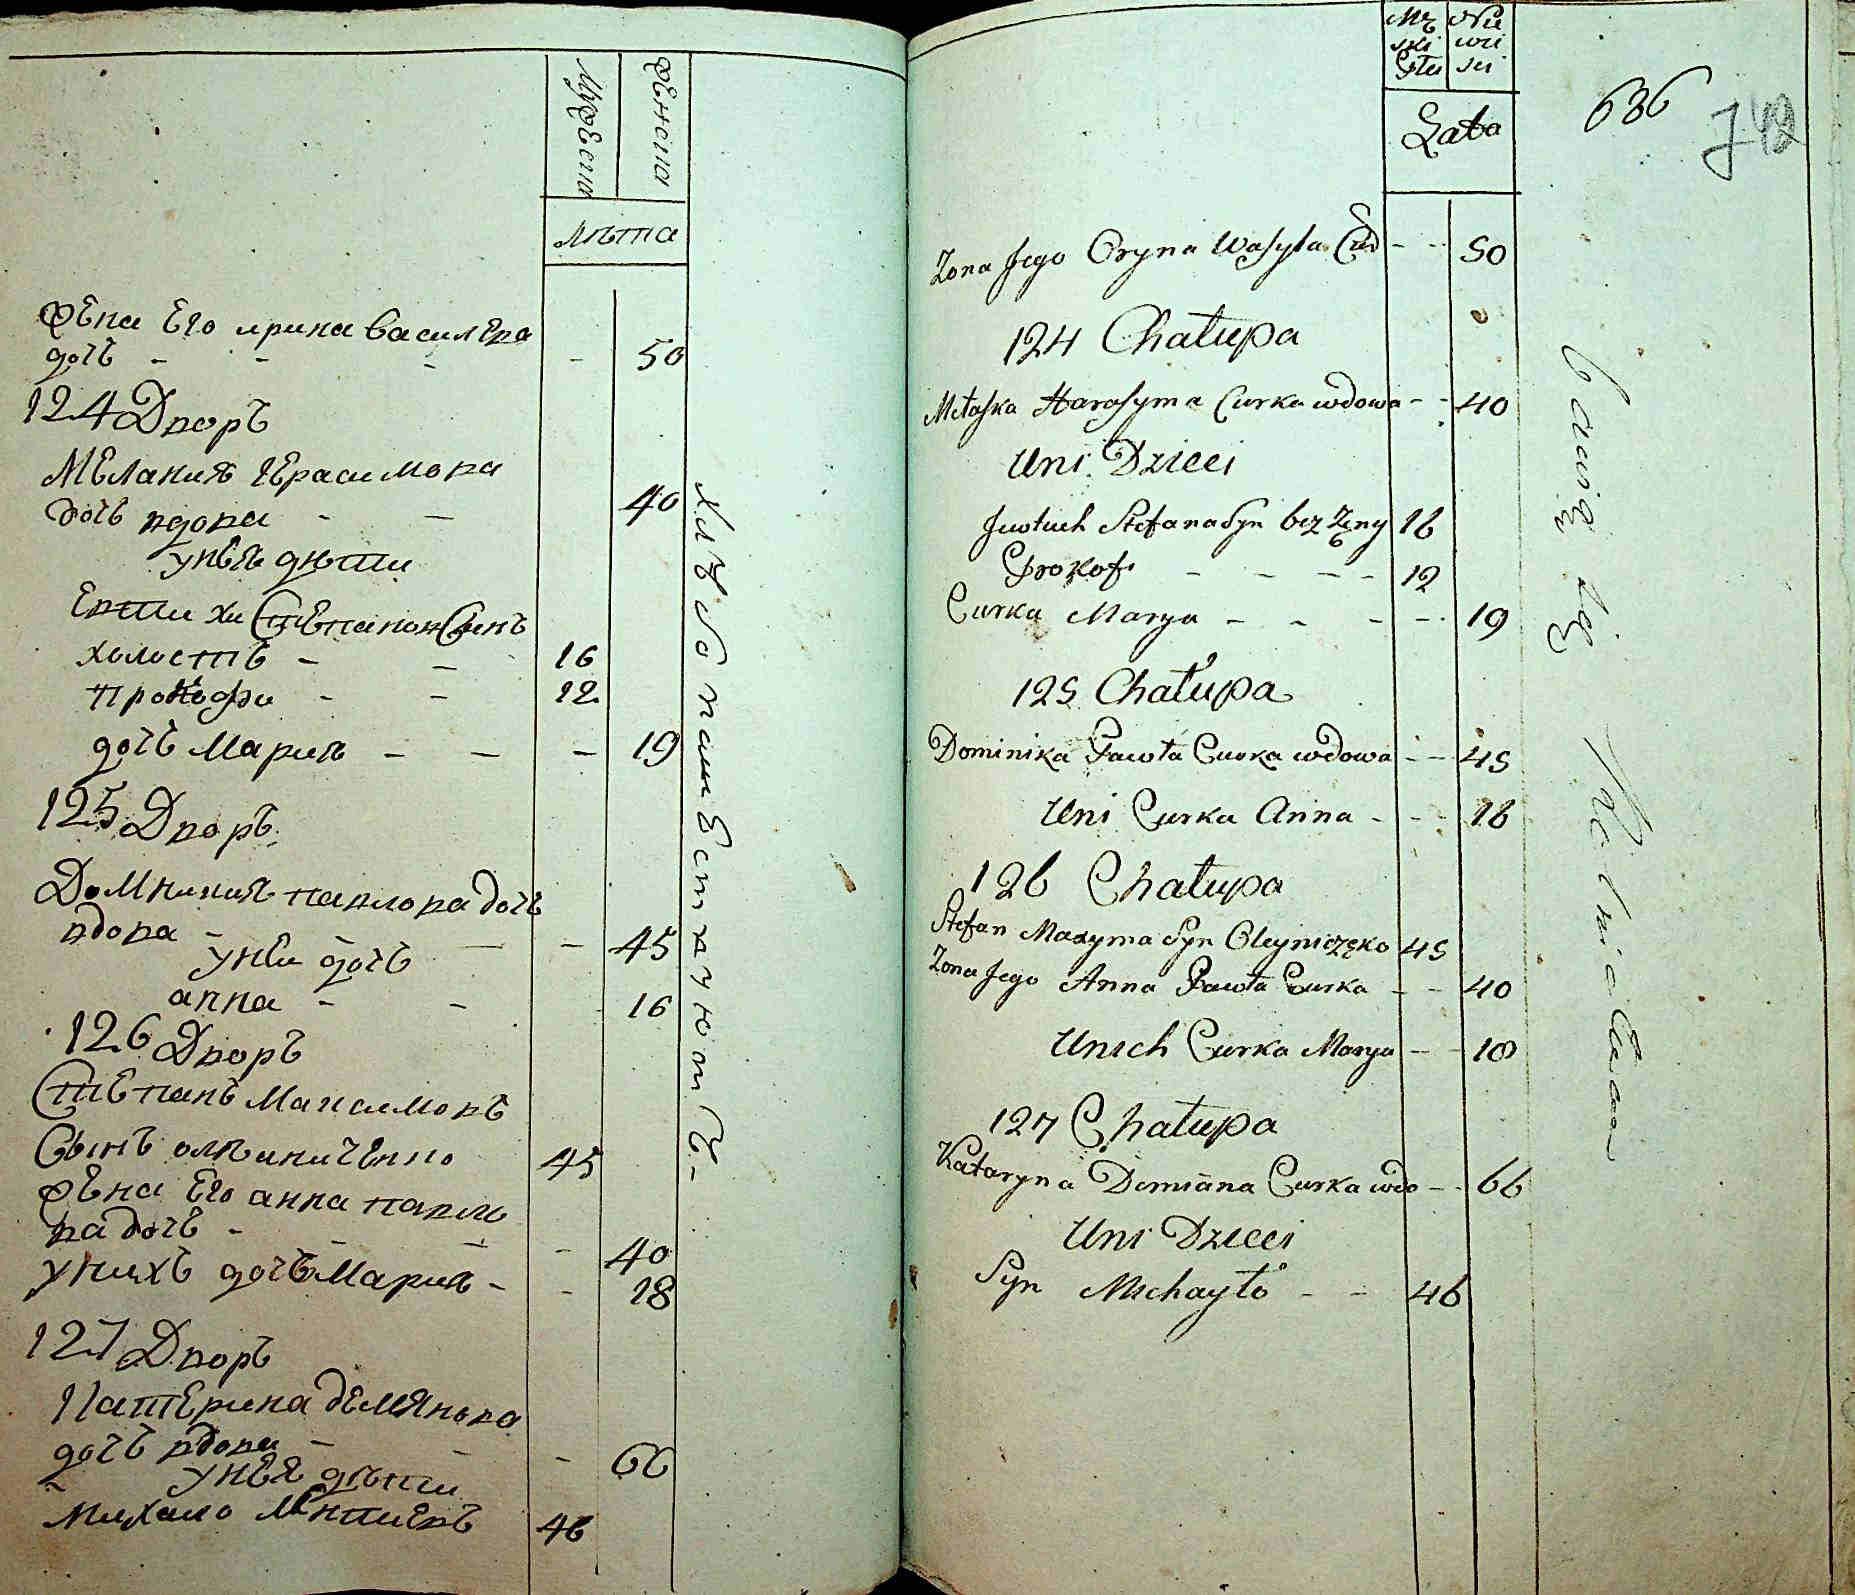 Мужеска
Женска
Лѣта
Жена Его ирина василева
дочь - - - - 50
124 Дворъ
Мелания герасимова
дочь вдова - - 40
у неѣ дѣти
Евтихи Степановъ Сынъ
холостъ - - 16
прокофи - - 12
дочь Мария - - - 19
125 Дворъ
Домникия павлова дочь
вдова - - - 45
у неи дочь
анна - - 16
126 Дворъ
Степанъ Максимовъ
Сынъ олѣиниченко 45
Жена Его анна павло
ва дочь - - - - 40
у нихъ дочь Мария - - 18
127 Дворъ
Катерина демянова
дочь вдова - - - 66
у нея дѣти
Михаило 46
хлѣбопашествуютъ -
Mę
ski
Nie
wie
ści
Lata
636
742
Zona Jego Oryna Wasyla Cur - - 50
124 Chałupa
Mełaska Harasyma Curka wdowa - - 40
Uni Dzieci
Jewtuch Stefana Syn bez Żeny 16
Prokof - - - - 12
Curka Marya - - - - 19
125 Chałupa
Dominika Pawła Curka wdowa - - 45
Uni Curka Anna - - - 16
126 Chałupa
Stefan Maxyma Syn Oleyniczęko 45
Zona Jego Anna Pawła Curka - - 40
Unich Curka Marya - - 18
127 Chałupa
Kataryna Demiana Curka wdo - - 66
Uni Dzieci
Syn Michayło - - 46
bawią się Rolnictwem